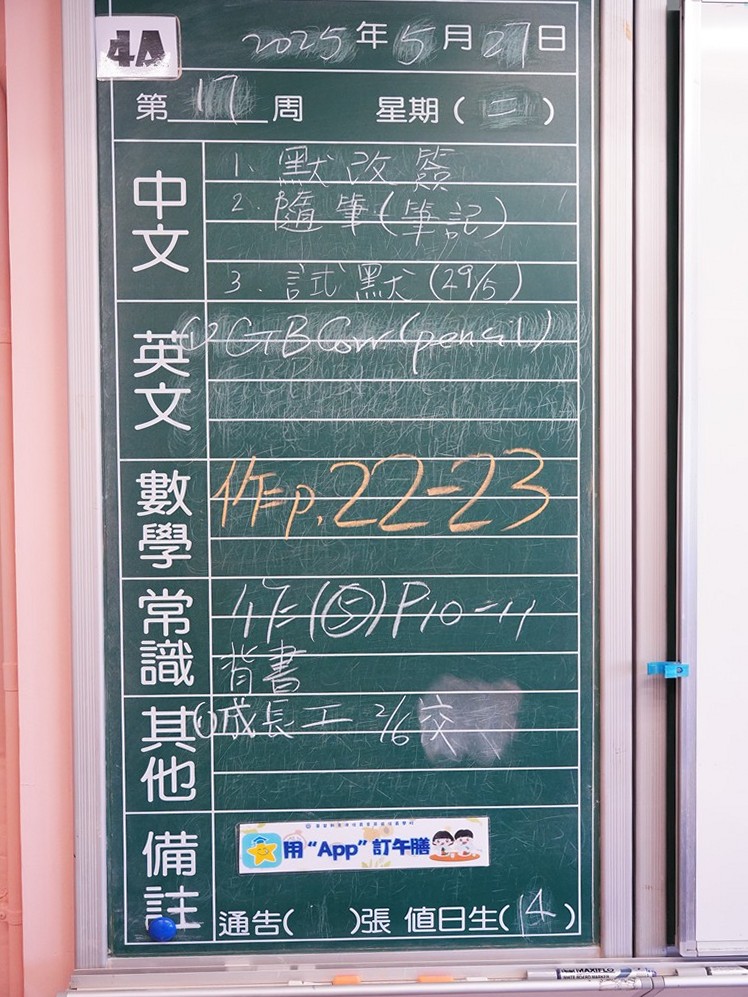 4A
2025年5月27日
第17周 星期(二)
中文
1. 默改簽
2. 隨筆(筆記)
3. 試默(29/5)
英文
GB Corr(pencil)
數學
作 p.22-23
常識
作(⑤)P10-11
背書
其他
① 成長工 2/6 交
備註
用“App”訂午膳
通告( )張 值日生(14)
MAXIFLO